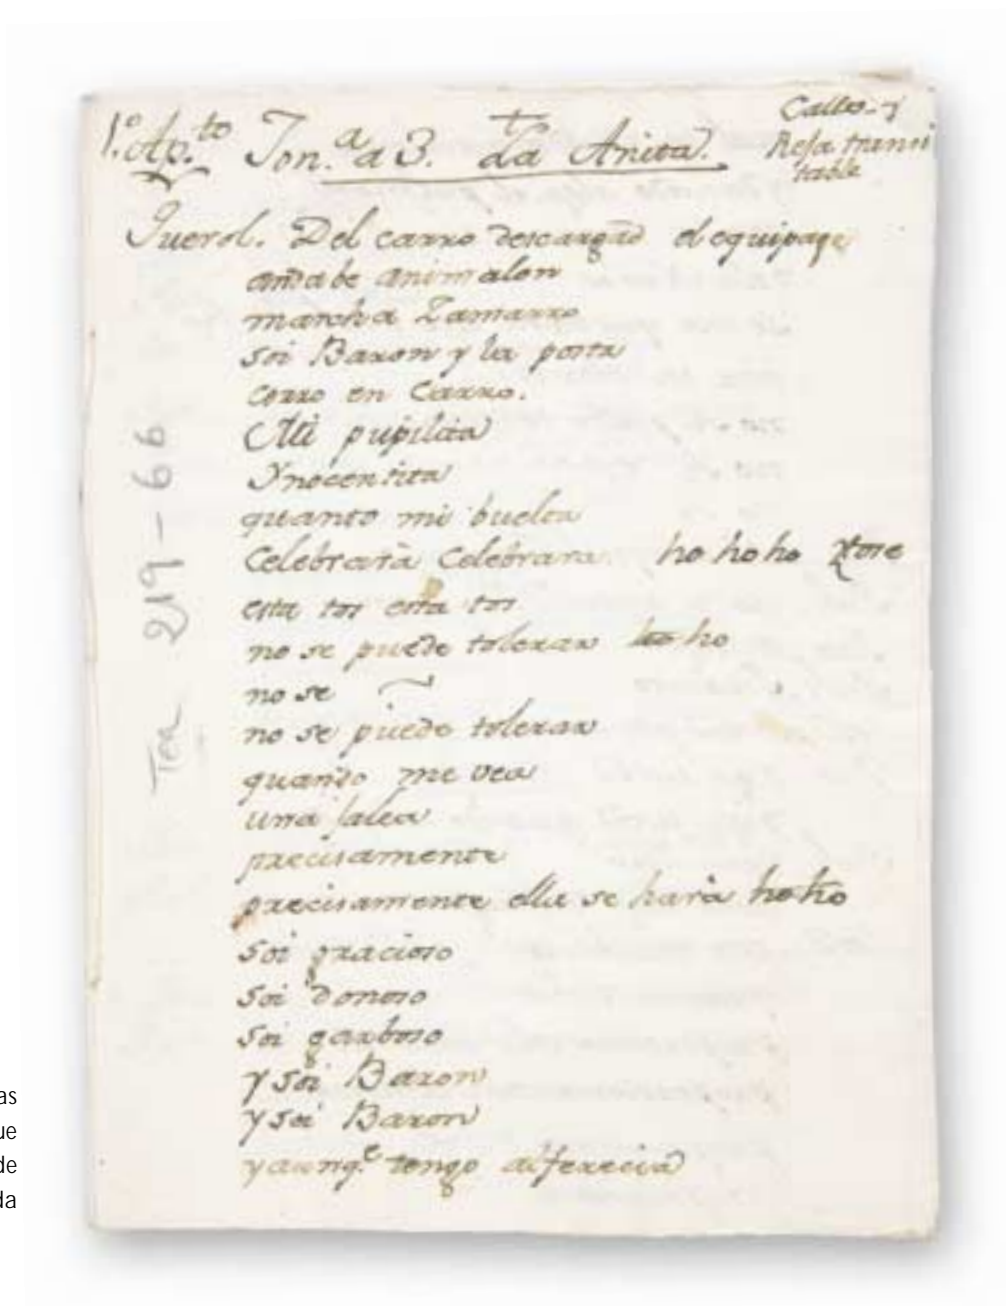 1.º Ap.to Ton.a a 3. La Anita.
Calle y
Reja transi
table
Querol. Del carro descargad el equipage
anda be animalon
marcha Zamarro
soi Baron y la posta
corro en Carro.
Mi pupilita
Ynocentita
quanto mi buelta
Celebrarà Celebrara ho ho ho tose
esta tos esta tos
no se puede tolerar ho ho
no se
no se puede tolerar
quando me vea
una jalea
precisamente
precisamente ella se harà ho ho
soi gracioso
soi donoso
soi garboso
y soi Baron
y soi Baron
y aunq.e tengo alferecia
Tea 219-66
as
ue
de
da